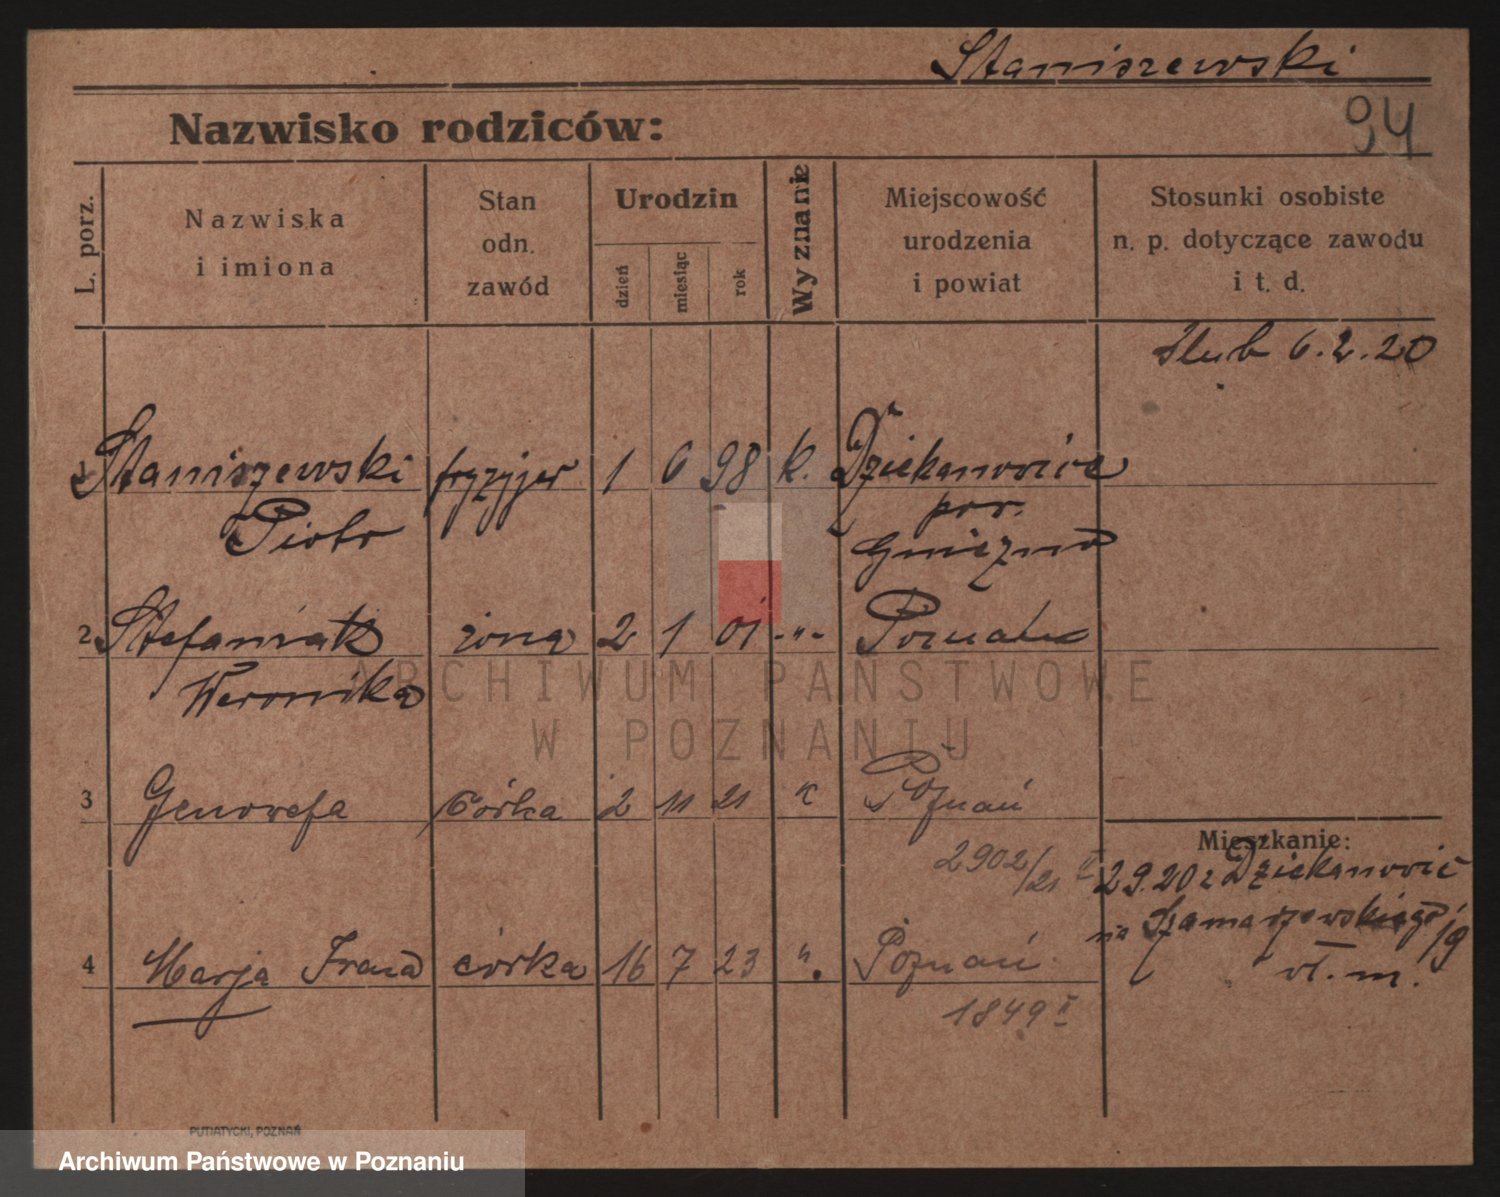 Staniszewski
94
Nazwisko rodziców:
L. porz.
Nazwiska
i imiona
Stan
odn.
zawód
Urodzin
dzień
miesiąc
rok
Wyznanie
Miejscowość
urodzenia
i powiat
Stosunki osobiste
n. p. dotyczące zawodu
i t. d.
ślub 6.2.20
1 Staniszewski fryzyjer 1 6 98 k. Dziekanowice
Piotr
pow.
Gniezno
2 Stefaniak żona 2 1 01 -"- Poznań
Weronika
ARCHIWUM PAŃSTWOWE
W POZNANIU
3 Genowefa córka 2 11 21 k Poznań
2902/21 II
Mieszkanie:
2.9.20 z Dziekanowic
na Szamarzewskiego 19
4 Marja Irena córka 16 7 23 ". Poznań
vt. m.
1849 II
PUTIATYCKI, POZNAŃ
Archiwum Państwowe w Poznaniu